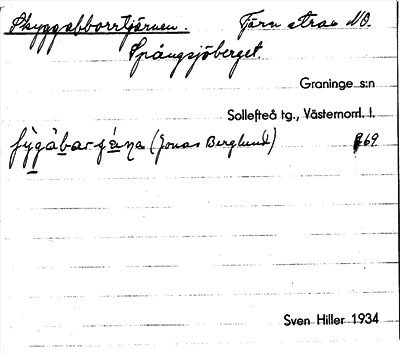 Skyggabborrtjärnen. Tjärn strax NO.
Spångsjöberget.
Graninge s:n
Sollefteå tg., Västernorrl. l.
(Jonas Berglund) 969
Sven Hiller 1934